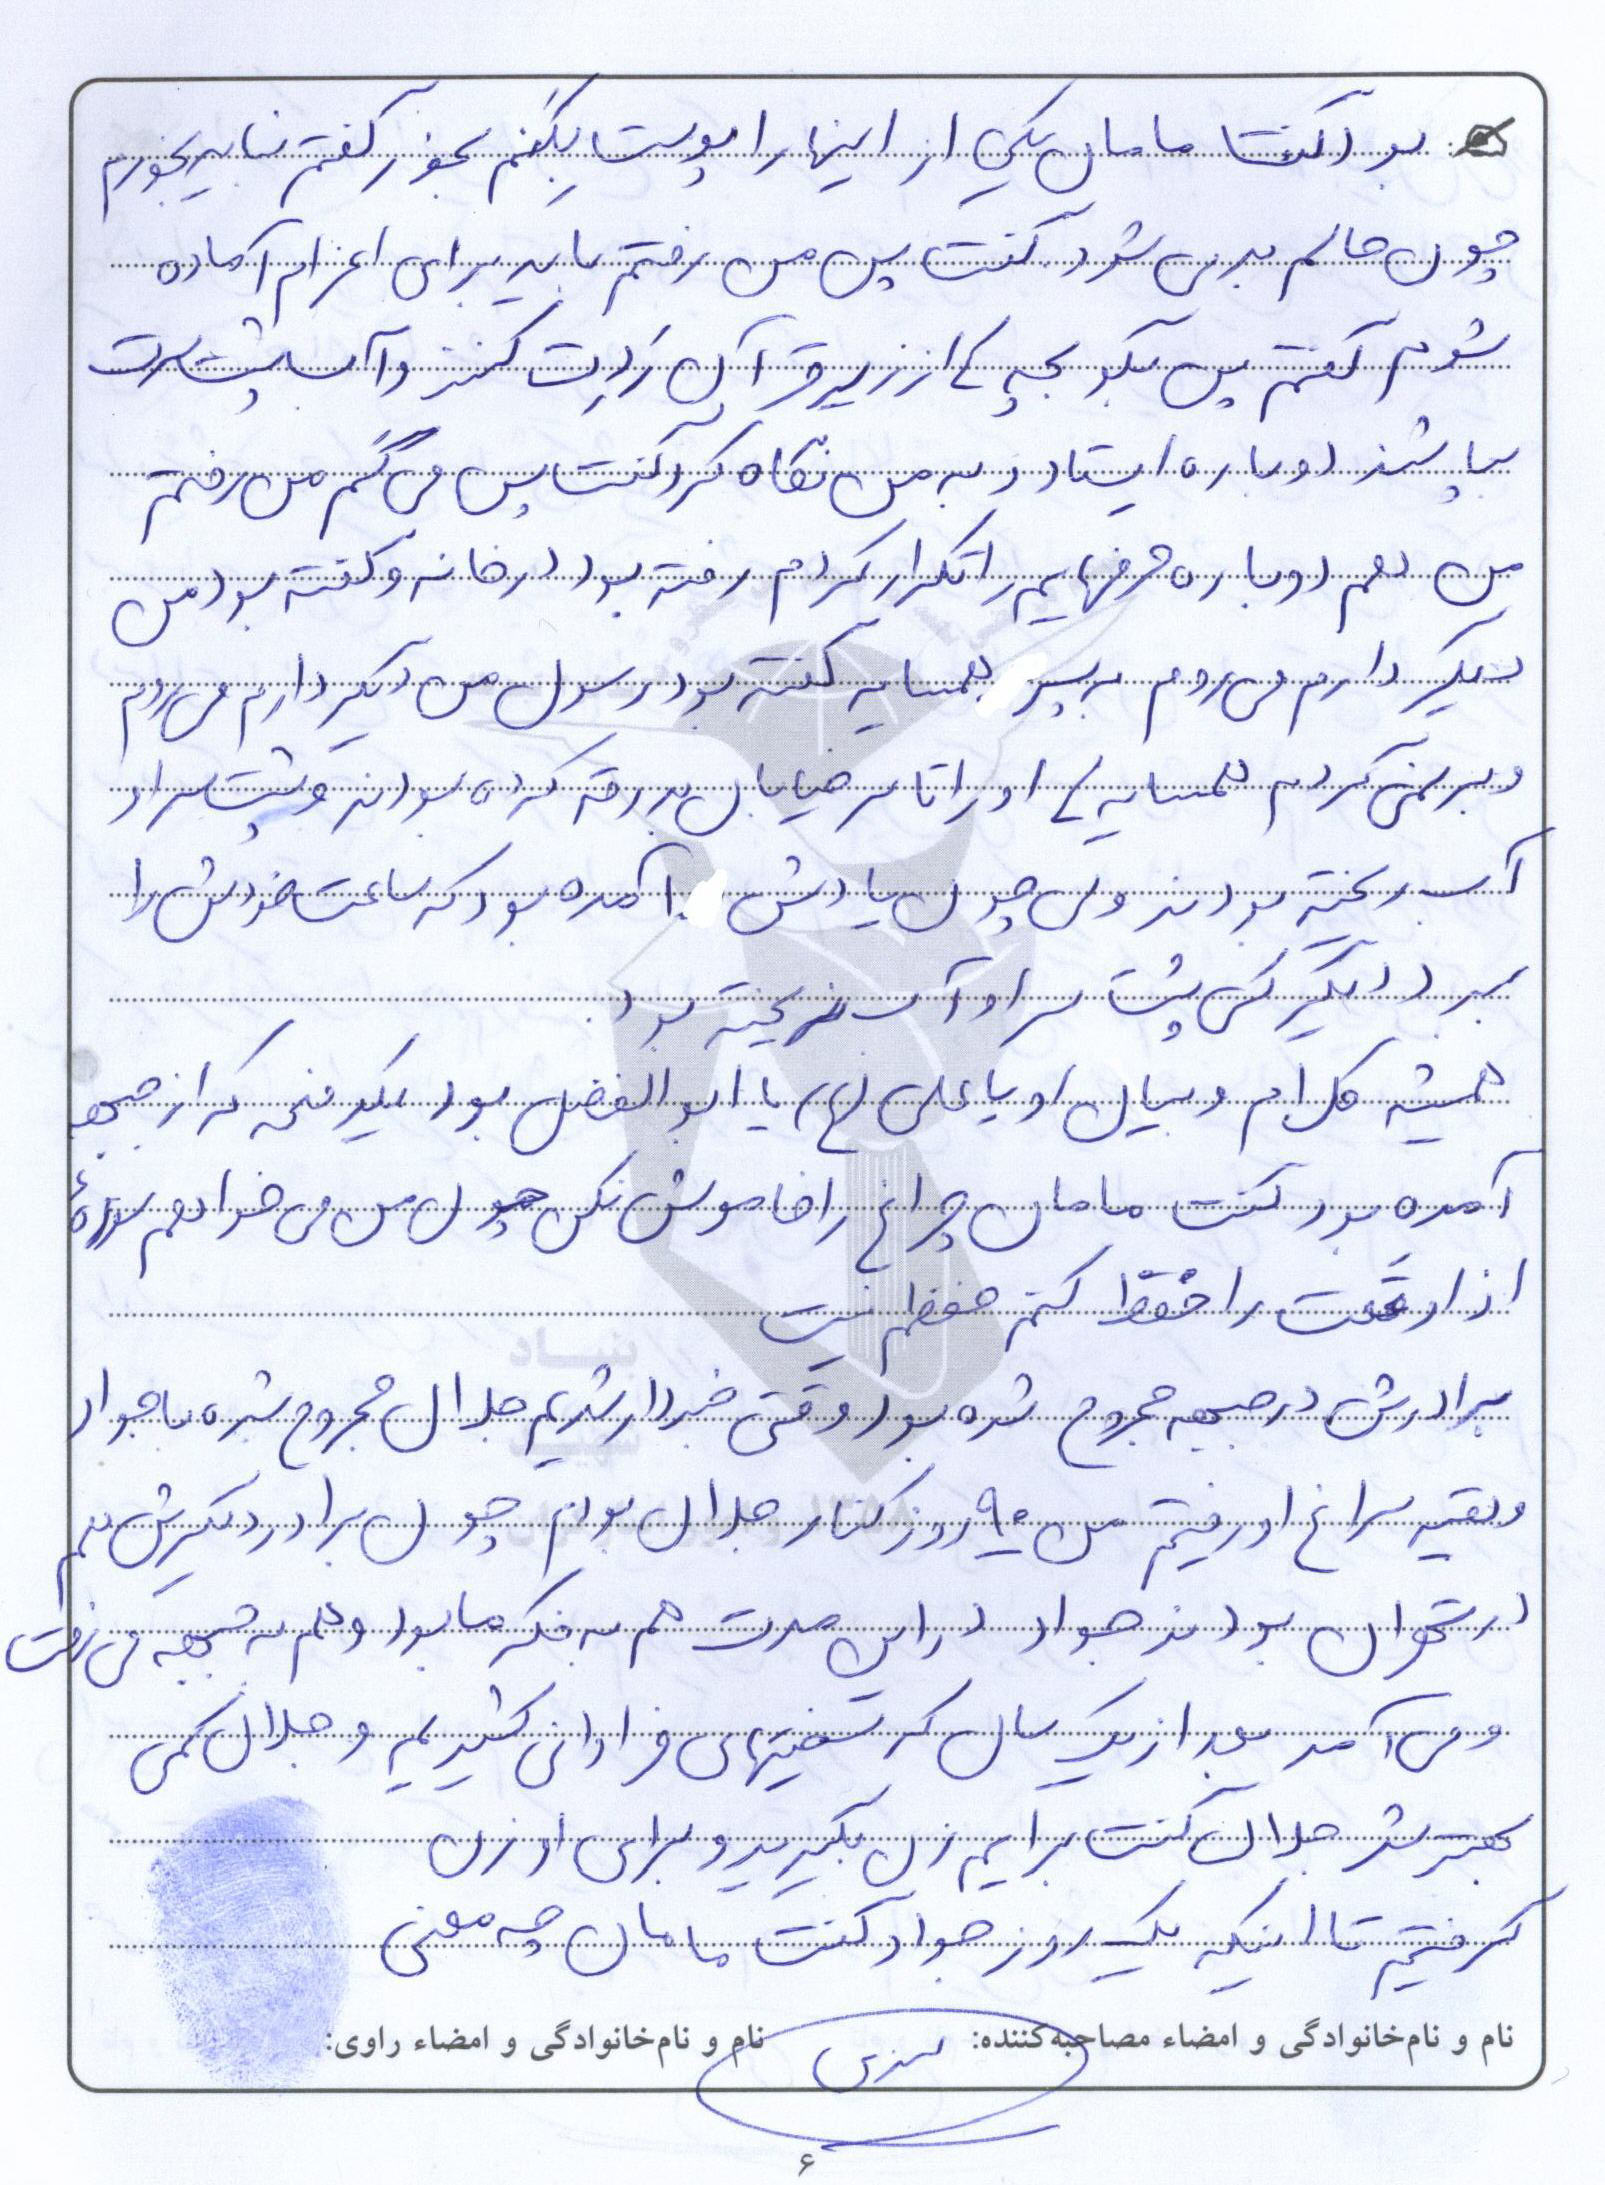 بود گفت مامان یکی از اینها را پوست بگنم بخور گفتم نباید بخورم
چون حالم بد می شود. گفت پس من رفتم باید برای اعزام آماده
شوم گفتم پس بگو بچه ها از زیر قرآن ردت کنند و آب پشت سرت
بپاشند دوباره ایستاد و به من نگاه کرد گفت پس می گم من رفتم
من هم دوباره حرفهایم را تکرار کردم رفته بود در خانه و گفته بود من
دیگر دارم می روم به پسر همسایه گفته بود رسول من دیگر دارم می روم
و بر نمی گردم همسایه ها او را تا سر خیابان بدرقه کرده بودند و پشت سر او
آب ریخته بودند ولی چون یادش آمده بود که ساعت خودش را
ببرد دیگر کسی پشت سر او آب نریخته بود.
همیشه کلام و بیان او یا علی (ع) یا ابوالفضل بود یکدفعه که از جبهه
آمده بود گفت مامان چراغ را خاموش نکن چون من می خواهم سورهٔ
اذا وقعت را حفظ کنم حفظم نیست
برادرش در جبهه مجروح شده بود وقتی خبردار شدیم جلال مجروح شده با جواد
و بقیه سراغ او رفتیم من ۹۰ روز کنار جلال بودم چون برادر دیگرش هم
در تهران بودند جواد در این مدت هم به فکر ما بود و هم به جبهه می رفت
و می آمد بعد از یک سال که سختیهای فراوانی کشیدیم و جلال کمی
بهتر شد جلال گفت برایم زن بگیرید و برای او زن
گرفتیم تا اینکه یک روز جواد گفت مامان چه معنی
نام و نام‌خانوادگی و امضاء مصاحبه‌کننده: نام و نام‌خانوادگی و امضاء راوی:
۶